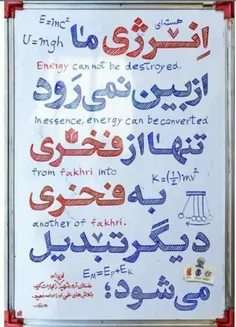 E=mc²
هسته‌ای
انرژی ما
U=mgh
Energy cannot be destroyed.
از بین نمی رود
In essence, energy can be converted
تنها از فخری
from fakhri into
K=(½)mv²
به فخری
another of fakhri.
دیگر تبدیل
می شود؛
E_M=E_P+E_K